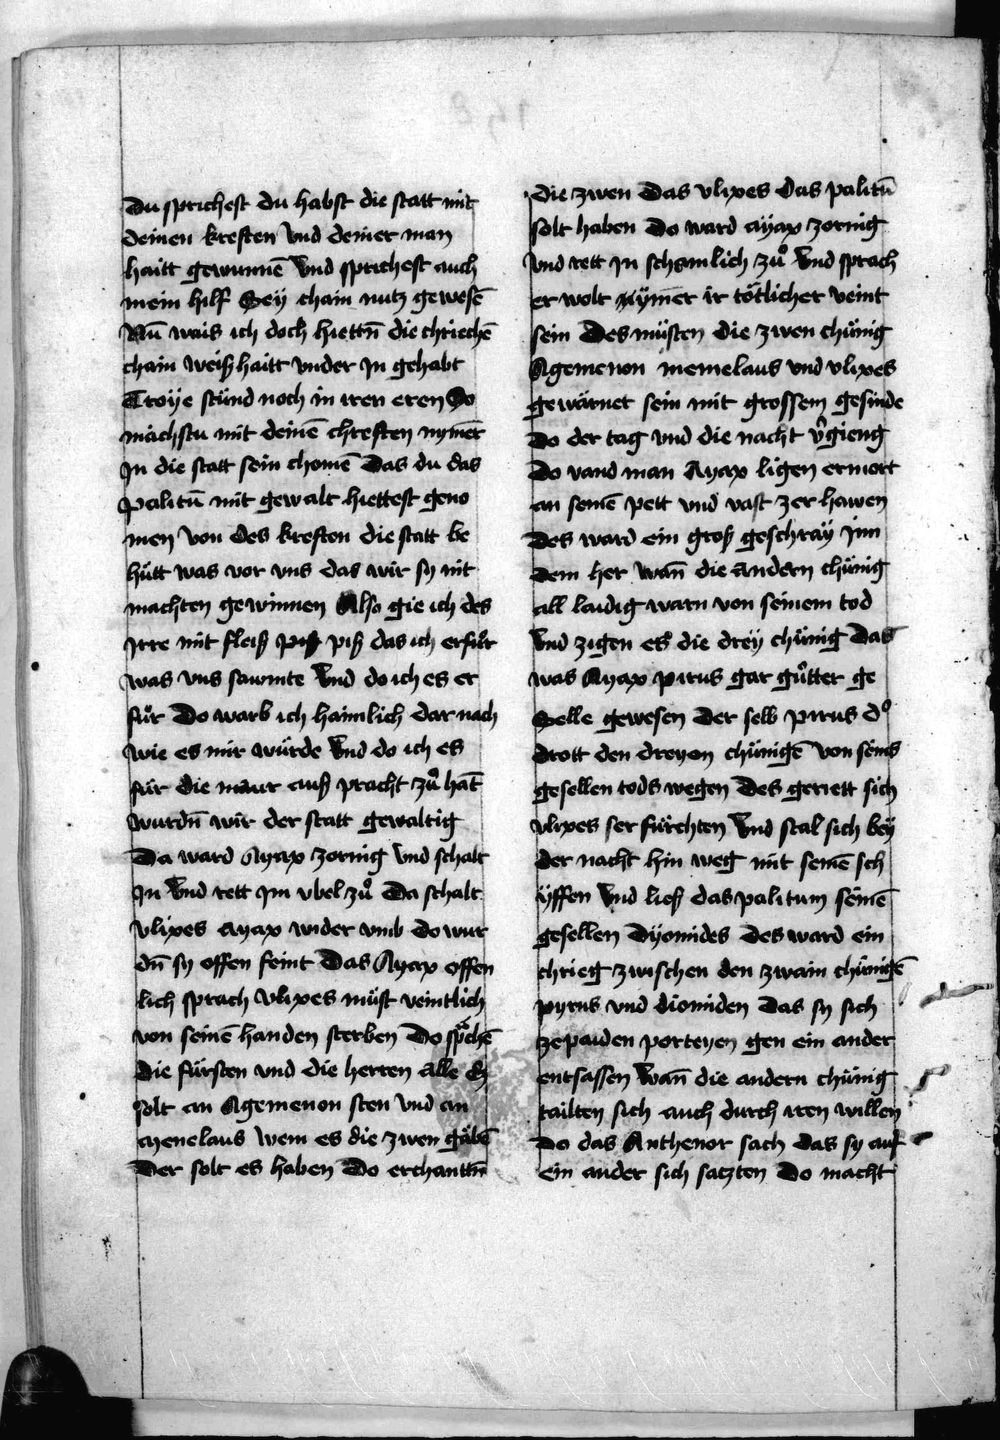 Du sprichest du habst die statt mit
deinen kreften vnd deiner man
haitt gewunnē Vnd sprichest auch
mein hilf Seÿ chain nutz gewesē
Nū wais ich doch hiettn̄ die chriechē
chain weißhaitt vnder in gehabt
Troÿe stünd noch in iren eren So
mächstu mit deinē chreften nym̄er
In die statt sein chomē Das du das
Palitū mit gewalt hiettest geno
men Von des kreften die statt be
hütt was vor vns das wir sy nit
machten gewinnen Also gie ich des
Irre mit fleiß piß das ich erfür
was vns sawmte Vnd do ich es er
fůr Do warb ich haimlich dar nach
wie es mir würde Vnd do ich es
für die maur auß pracht zů hāt
wurdn̄ wir der statt gewaltig
Da ward Ayax zornig Vnd schalt
In Vnd rett Im vbel zů Da schalt
Vlixes ayax wider vmb do wur
dn̄ sy offen feint Das Ayax offen
lich sprach Vlixes müst veintlich
von seinē handen sterben Do sprachē
die fürsten vnd die herren alle Es
solt an Agemenon sten Vnd an
Menelaus Wem es die zwen gäbē
Der solt es haben Do erchantn̄
die zwen Das vlixes das palitū
solt haben Do ward ayax zornig
vnd rett Jn schamlich zů Vnd sprach
er wolt nym̄er ir tötlicher veint
sein Des müsten die zwen chünig
Agemenon menelaus vnd vlixes
gewärnet sein mit grossem gesinde
Do der tag vnd die nacht v̓gieng
Do vand man Ayax ligen ermort
an seinē pett vnd vast zer hawen
Des ward ein groß geschräy Jnn
dem her wan̄ die andern chünig
all laidig warn von seinem tod
Vnd zigen es die dreÿ chünig Das
was Ayax pirus gar gůtter ge
Selle gewesen Der selb pirus do
drott den dreyen chünigē von seins
gesellen tods wegen Des geriett sich
vlixes ser fürchten Vnd stal sich beÿ
der nacht hin weg mit seinē sch
ÿffen Vnd ließ das palitum seinē
gesellen Dÿomides des ward ein
chrieg zwischen den zwain chünigē
pyrus vnd diomiden Das sy sich
zepaiden porteyen gen ein ander
entsassen Wan̄ die andern chünig
tailten sich auch durch iren willen
Do das Anthenor sach das sy auf
ein ander sich satzten Do macht